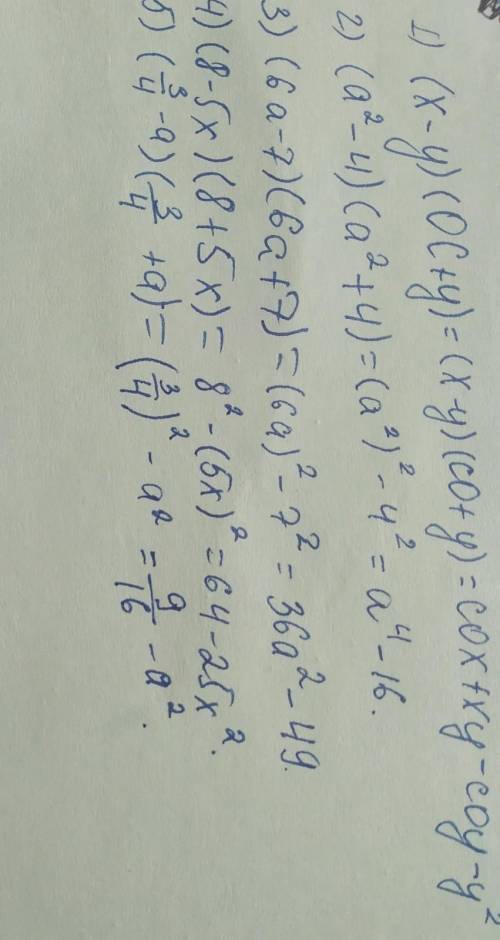 1) (x-y)(OC+y)=(x-y)(co+y)=cox+xy-coy-y²
2) (a²-4)(a²+4)=(a²)²-4²=a⁴-16.
3) (6a-7)(6a+7)=(6a)²-7²=36a²-49.
4) (8-5x)(8+5x)=8²-(5x)²=64-25x².
5) (3/4-a)(3/4+a)=(3/4)²-a²=9/16-a².